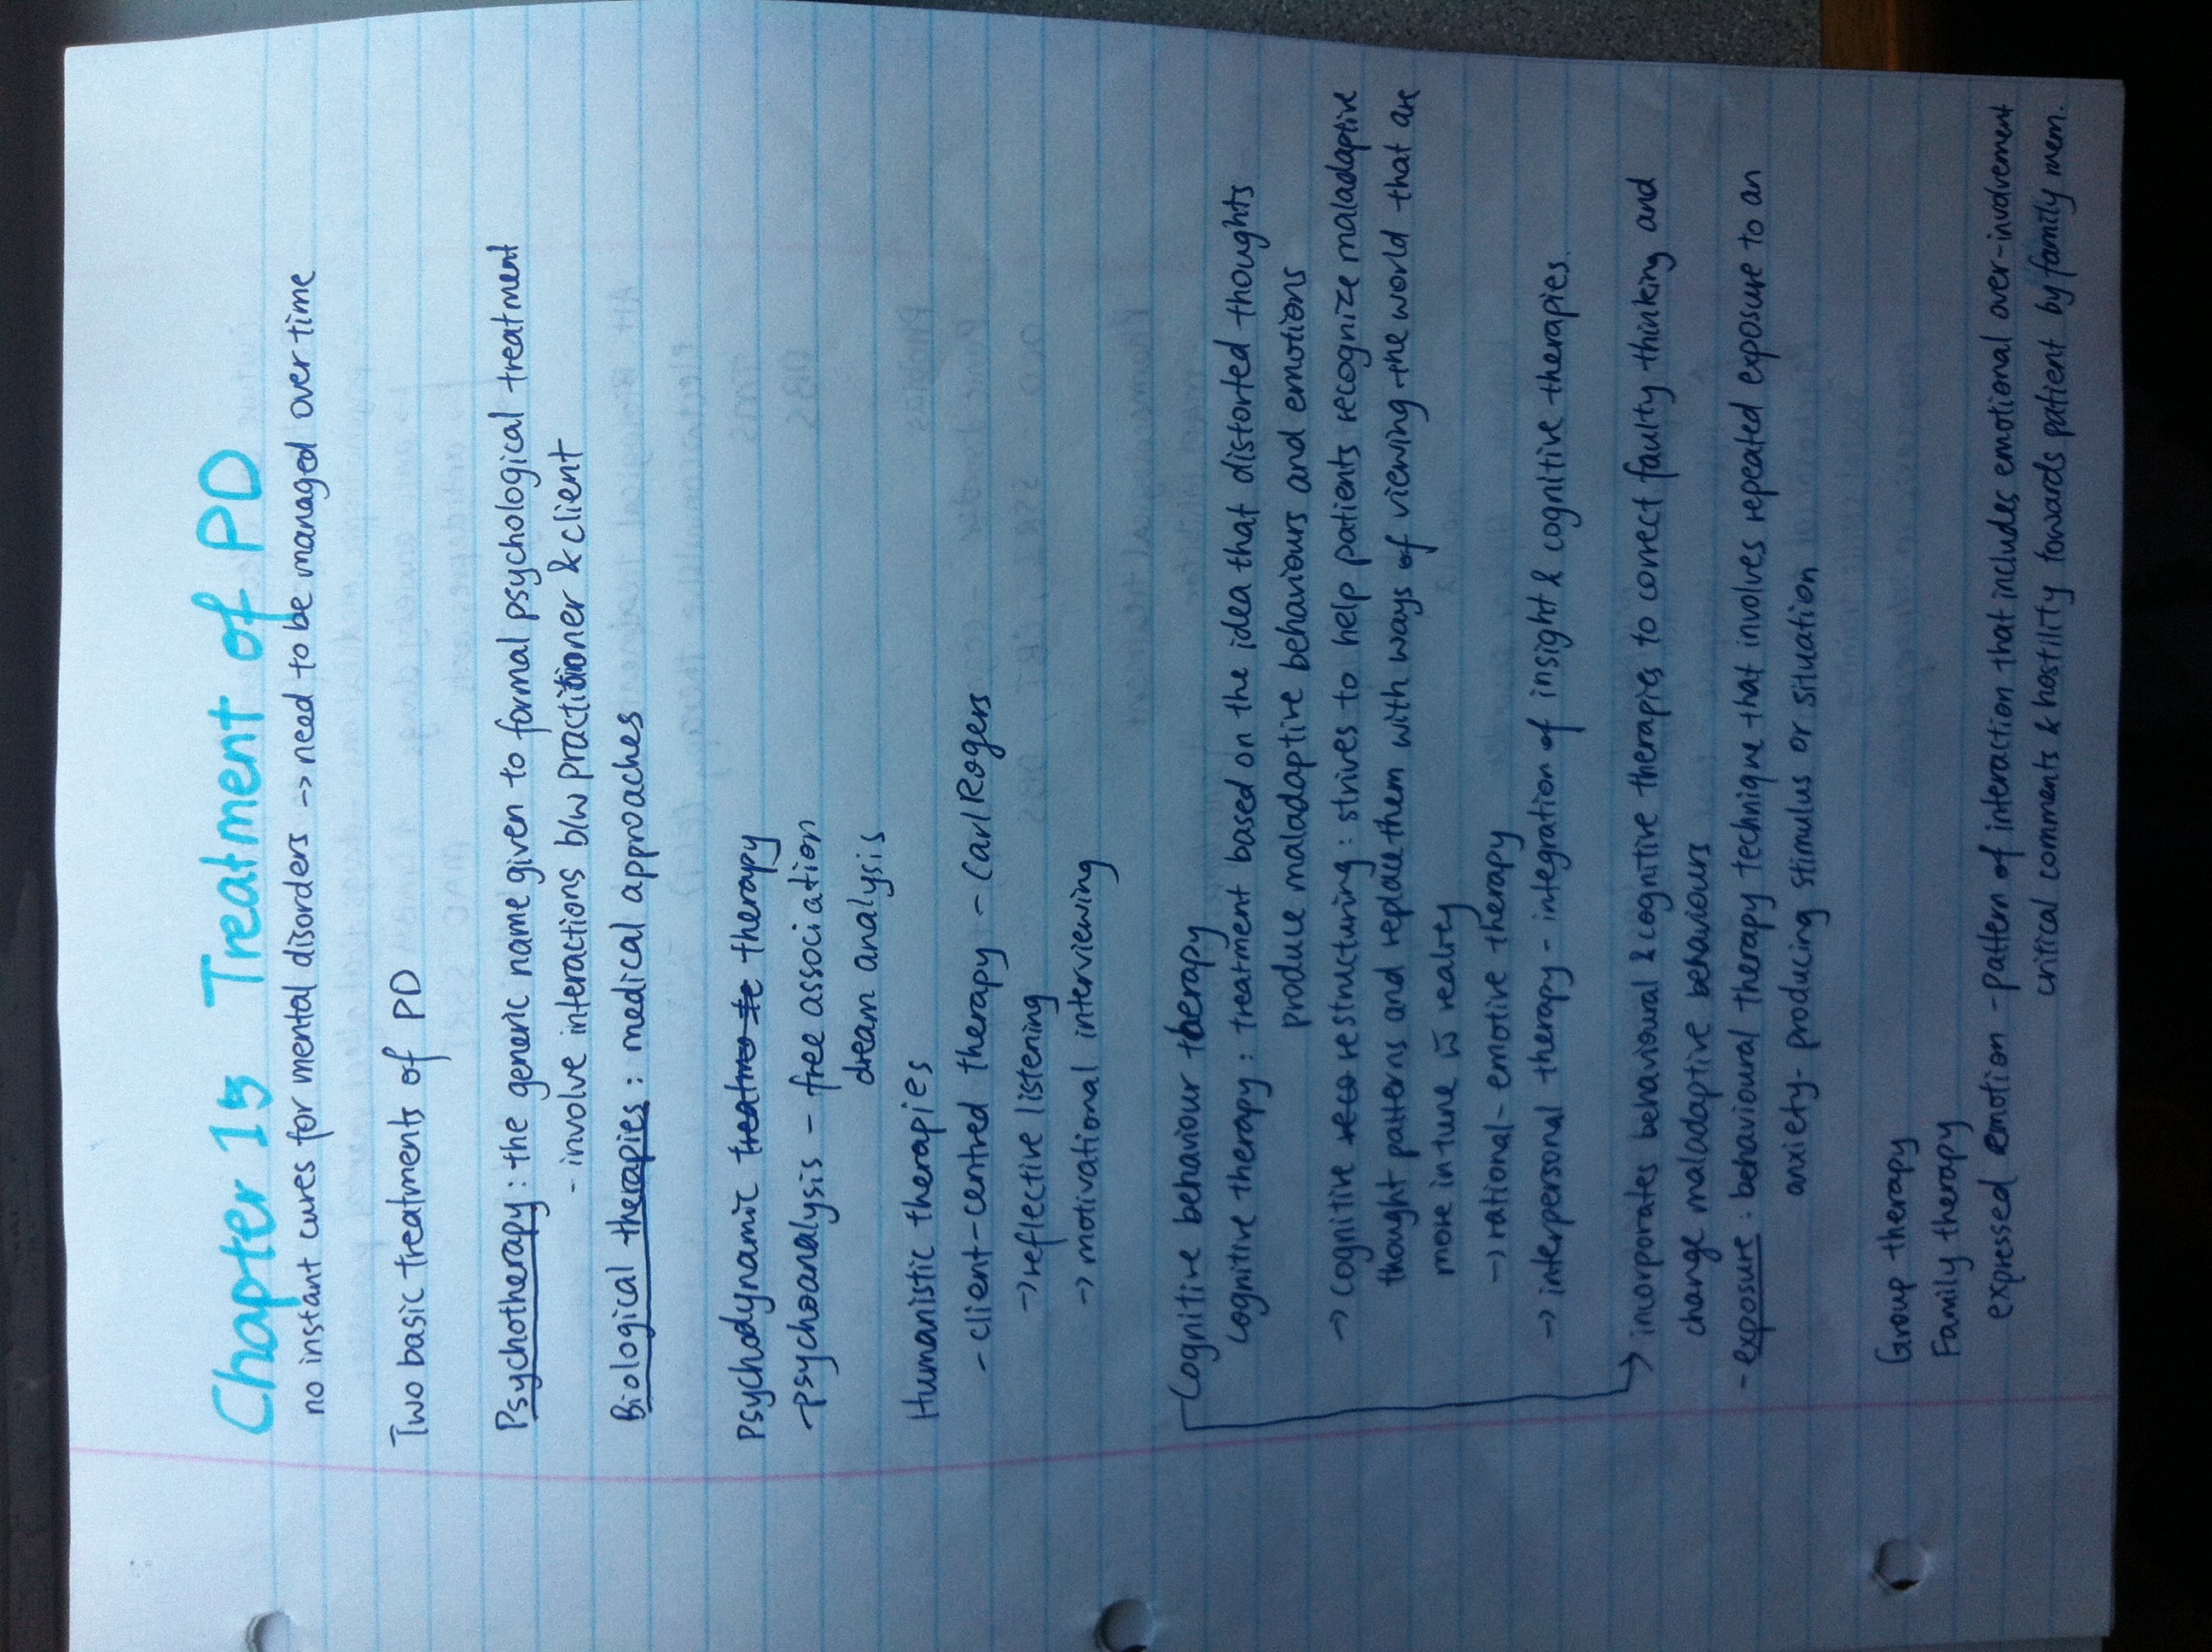 Chapter 15 Treatment of PD
no instant cures for mental disorders -> need to be managed over time
Two basic treatments of PD
Psychotherapy : the generic name given to formal psychological treatment
- involve interactions b/w practitioner & client
Biological therapies : medical approaches
Psychodynamic treatme te therapy
-psychoanalysis - free association
dream analysis
Humanistic therapies
- client-centred therapy - Carl Rogers
-> reflective listening
-> motivational interviewing
Cognitive behaviour therapy
cognitive therapy : treatment based on the idea that distorted thoughts
produce maladaptive behaviours and emotions
-> cognitive restructuring : strives to help patients recognize maladaptive
thought patterns and replace them with ways of viewing the world that are
more in tune w realty
-> rational-emotive therapy
-> interpersonal therapy - integration of insight & cognitive therapies
-> incorporates behavioural & cognitive therapies to correct faulty thinking and
change maladaptive behaviours
- exposure : behavioural therapy technique that involves repeated exposure to an
anxiety-producing stimulus or situation
Group therapy
Family therapy
expressed emotion - pattern of interaction that includes emotional over-involvement
critical comments & hostility towards patient by family mem.